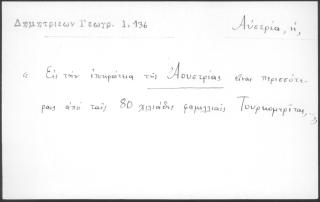 Δημητριεων Γεωγρ. 1.136
Αὐστρία, ἡ,
" Εἰς τὴν ἐπικράτεια τῆς Αουστρίας εἶναι περισσότε-
ραις ἀπὸ ταῖς 80 χιλιάδες φαμελλιαῖς Τουρκομερίται,